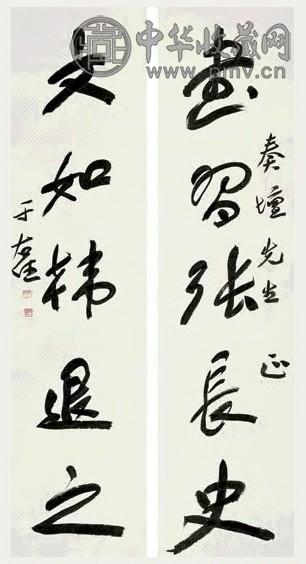 書習張長史
奏壇先生正
文如韓退之
于右任
中华收藏网
www.pmv.cn